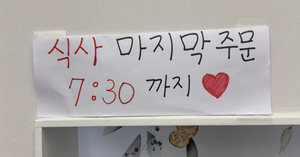 식사 마지막 주문
7:30 까지 ♥